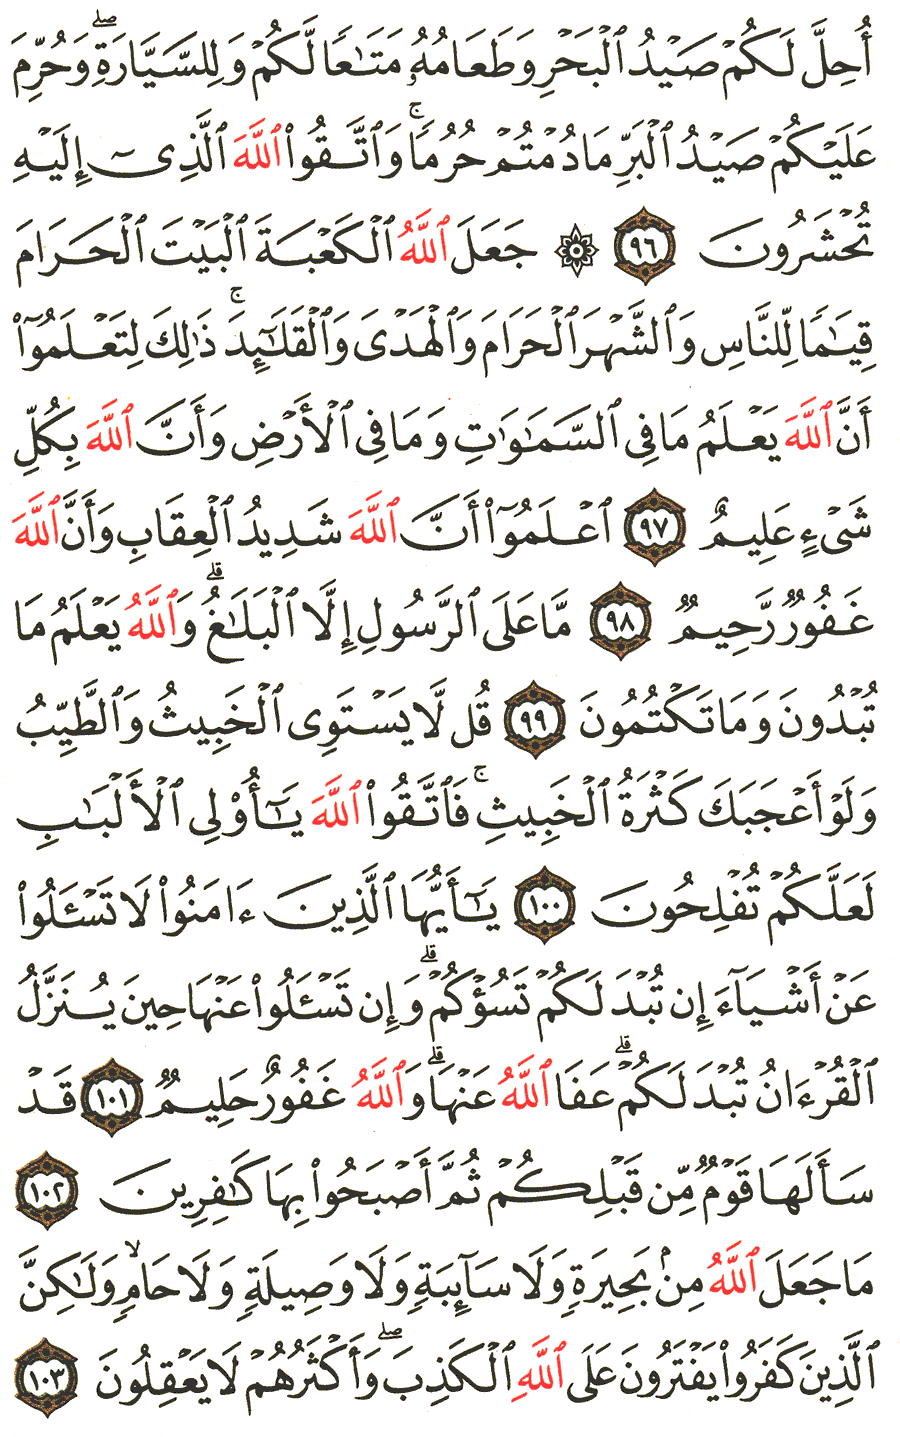 أُحِلَّ لَكُمْ صَيْدُ ٱلْبَحْرِ وَطَعَامُهُۥ مَتَـٰعًا لَّكُمْ وَلِلسَّيَّارَةِ ۖ وَحُرِّمَ
عَلَيْكُمْ صَيْدُ ٱلْبَرِّ مَا دُمْتُمْ حُرُمًا ۗ وَٱتَّقُوا۟ ٱللَّهَ ٱلَّذِىٓ إِلَيْهِ
تُحْشَرُونَ ٩٦ ۞ جَعَلَ ٱللَّهُ ٱلْكَعْبَةَ ٱلْبَيْتَ ٱلْحَرَامَ
قِيَـٰمًا لِّلنَّاسِ وَٱلشَّهْرَ ٱلْحَرَامَ وَٱلْهَدْىَ وَٱلْقَلَـٰٓئِدَ ۚ ذَٰلِكَ لِتَعْلَمُوٓا۟
أَنَّ ٱللَّهَ يَعْلَمُ مَا فِى ٱلسَّمَـٰوَٰتِ وَمَا فِى ٱلْأَرْضِ وَأَنَّ ٱللَّهَ بِكُلِّ
شَىْءٍ عَلِيمٌ ٩٧ ٱعْلَمُوٓا۟ أَنَّ ٱللَّهَ شَدِيدُ ٱلْعِقَابِ وَأَنَّ ٱللَّهَ
غَفُورٌ رَّحِيمٌ ٩٨ مَّا عَلَى ٱلرَّسُولِ إِلَّا ٱلْبَلَـٰغُ ۗ وَٱللَّهُ يَعْلَمُ مَا
تُبْدُونَ وَمَا تَكْتُمُونَ ٩٩ قُل لَّا يَسْتَوِى ٱلْخَبِيثُ وَٱلطَّيِّبُ
وَلَوْ أَعْجَبَكَ كَثْرَةُ ٱلْخَبِيثِ ۚ فَٱتَّقُوا۟ ٱللَّهَ يَـٰٓأُو۟لِى ٱلْأَلْبَـٰبِ
لَعَلَّكُمْ تُفْلِحُونَ ١٠٠ يَـٰٓأَيُّهَا ٱلَّذِينَ ءَامَنُوا۟ لَا تَسْـَٔلُوا۟
عَنْ أَشْيَآءَ إِن تُبْدَ لَكُمْ تَسُؤْكُمْ ۗ وَإِن تَسْـَٔلُوا۟ عَنْهَا حِينَ يُنَزَّلُ
ٱلْقُرْءَانُ تُبْدَ لَكُمْ ۗ عَفَا ٱللَّهُ عَنْهَا ۗ وَٱللَّهُ غَفُورٌ حَلِيمٌ ١٠١ قَدْ
سَأَلَهَا قَوْمٌ مِّن قَبْلِكُمْ ثُمَّ أَصْبَحُوا۟ بِهَا كَـٰفِرِينَ ١٠٢
مَا جَعَلَ ٱللَّهُ مِنۢ بَحِيرَةٍ وَلَا سَآئِبَةٍ وَلَا وَصِيلَةٍ وَلَا حَامٍ ۙ وَلَـٰكِنَّ
ٱلَّذِينَ كَفَرُوا۟ يَفْتَرُونَ عَلَى ٱللَّهِ ٱلْكَذِبَ ۖ وَأَكْثَرُهُمْ لَا يَعْقِلُونَ ١٠٣